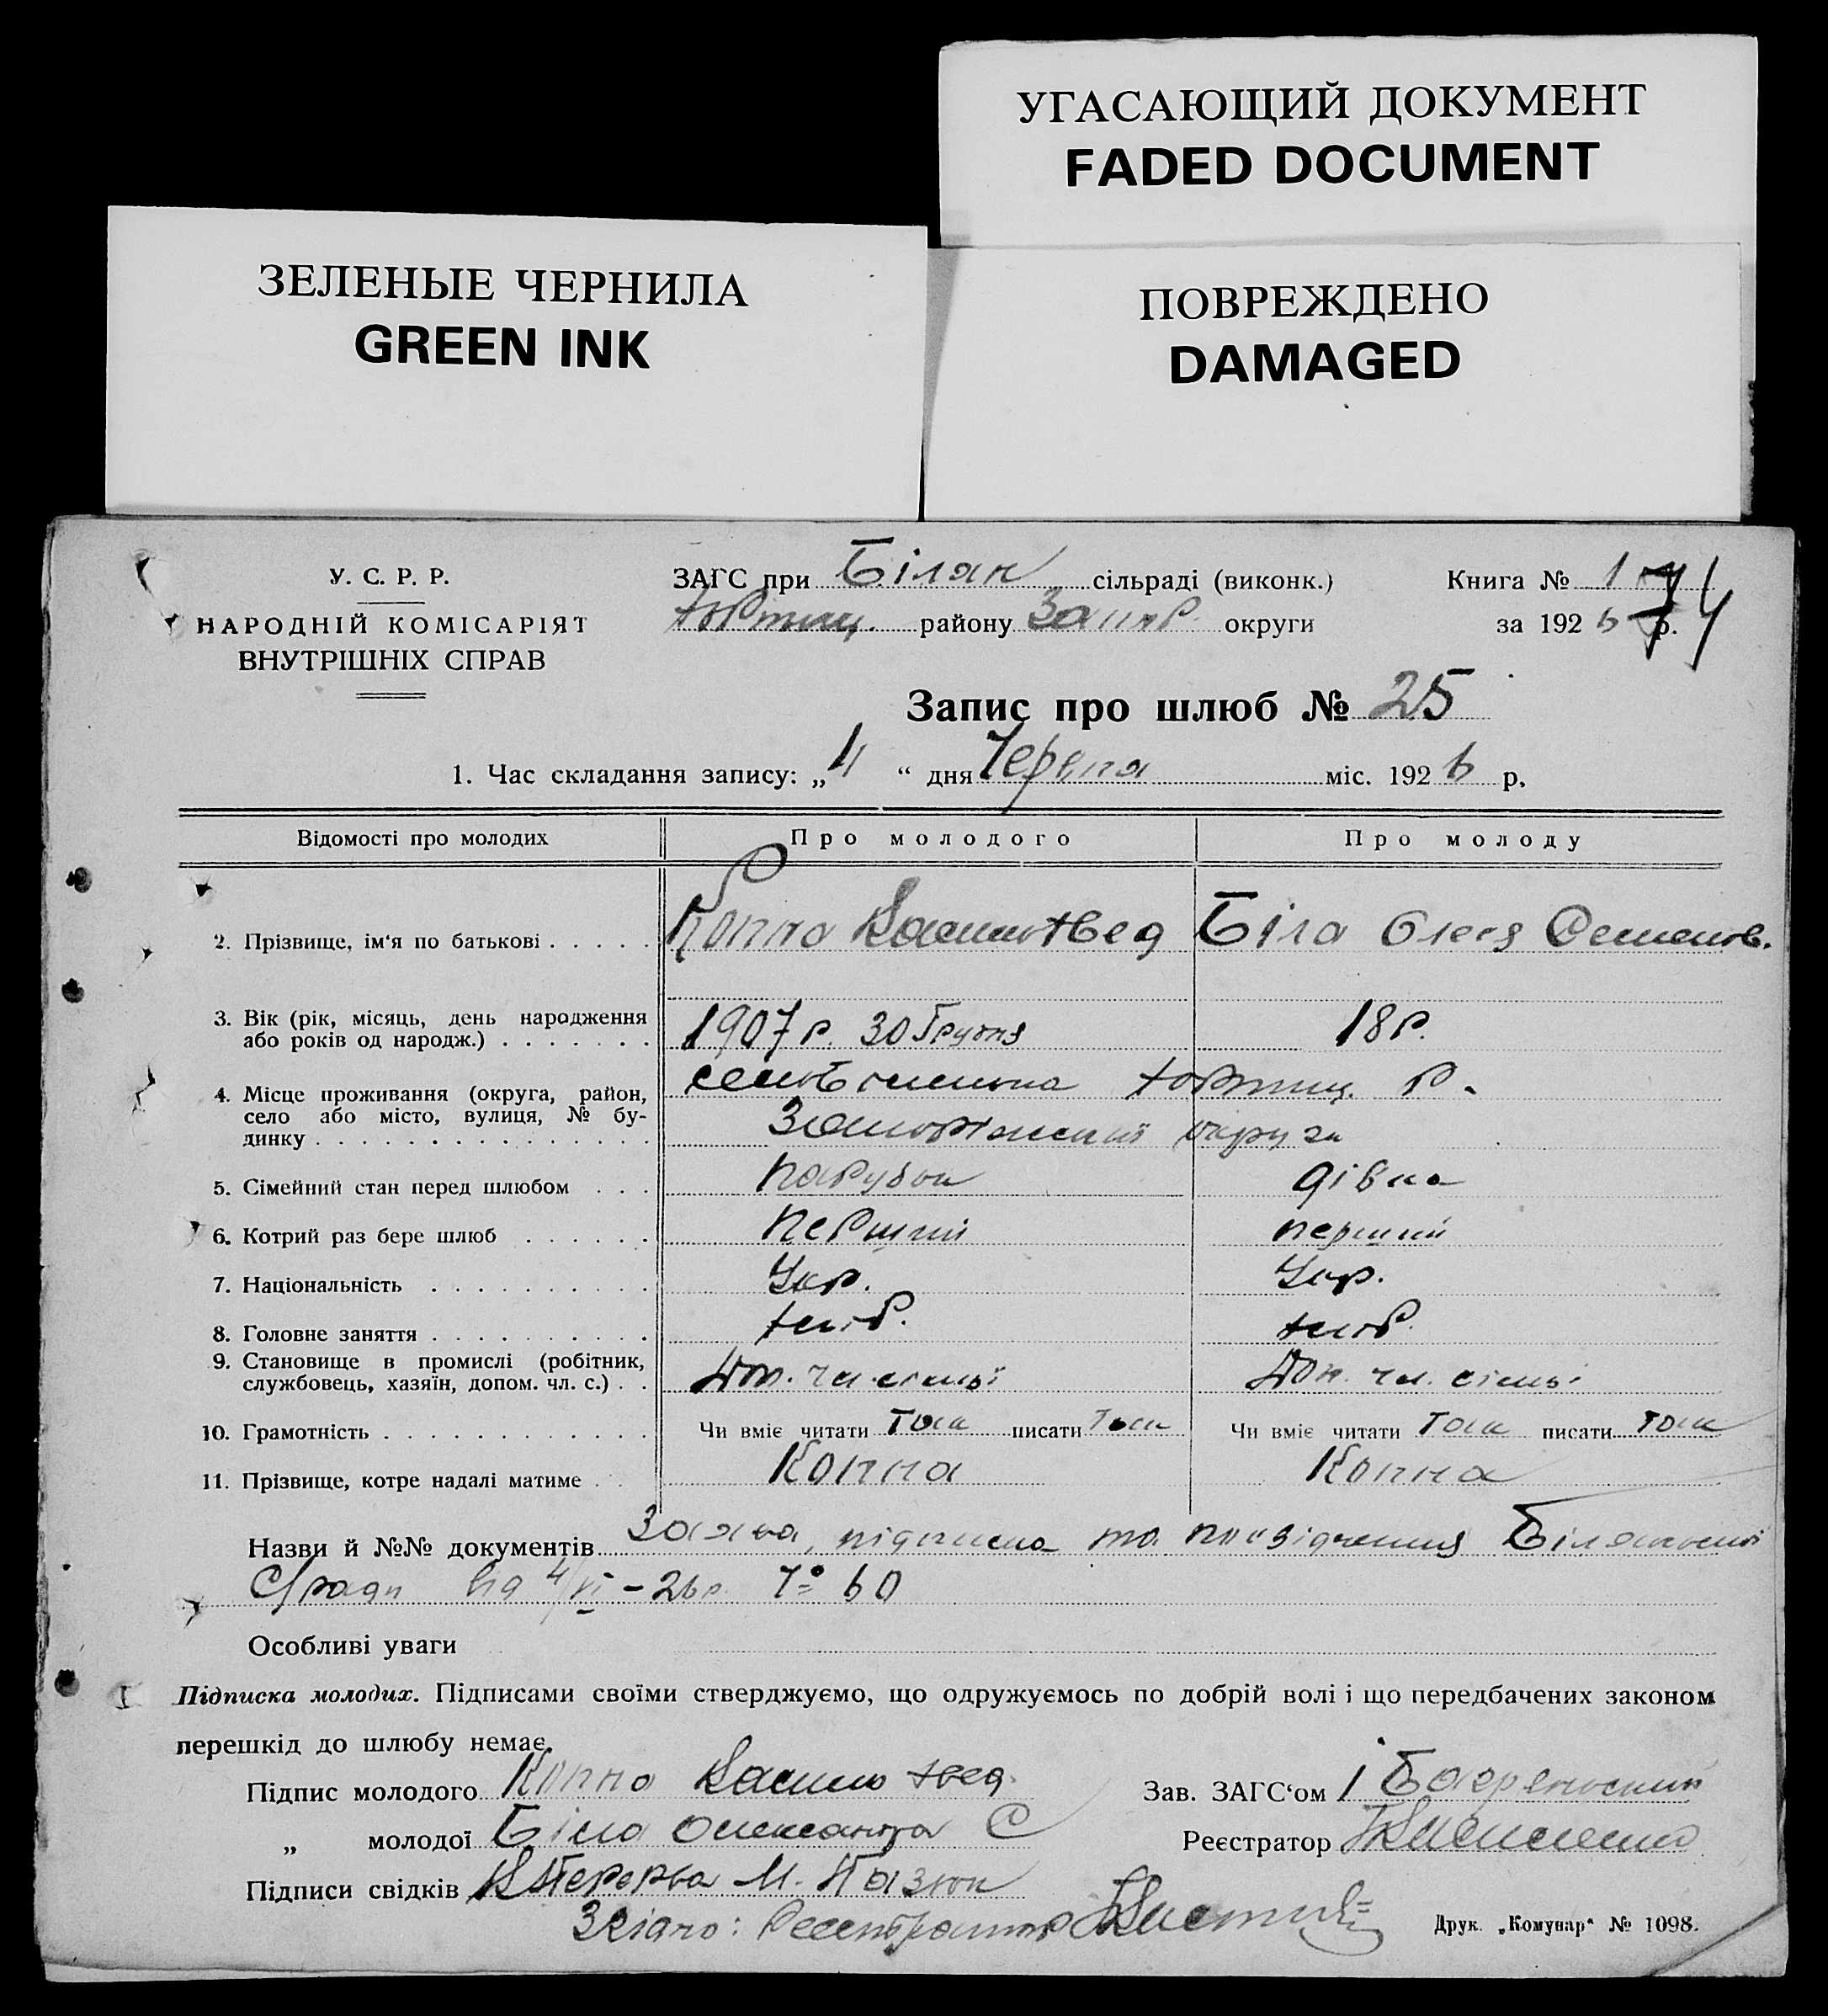 УГАСАЮЩИЙ ДОКУМЕНТ
FADED DOCUMENT
ЗЕЛЕНЫЕ ЧЕРНИЛА
GREEN INK
ПОВРЕЖДЕНО
DAMAGED
У. С. Р. Р.
НАРОДНІЙ КОМІСАРІЯТ
ВНУТРІШНІХ СПРАВ
ЗАГС при Білян сільраді (виконк.)
Хортиц. району Запор. округи
Книга № 1
за 1926 р.
74
Запис про шлюб № 25
1. Час складання запису: „4“ дня Червня міс. 1926 р.
Відомості про молодих Про молодого Про молоду
2. Прізвище, ім‘я по батькові Копна Василь Хвед Біла Олеся Семенов.
3. Вік (рік, місяць, день народження
або років од народж.) 1907 р. 30 Грудня 18 р.
4. Місце проживання (округа, район,
село або місто, вулиця, № бу-
динку село Хортиц. Р.
Запорізької округи
5. Сімейний стан перед шлюбом парубок дівка
6. Котрий раз бере шлюб перший перший
7. Національність Укр. Укр.
8. Головне заняття хліб. хліб.
9. Становище в промислі (робітник,
службовець, хазяїн, допом. чл. с.) Доп. чл. сімьї Доп. чл. сімьї
10. Грамотність Чи вміє читати Так писати Так Чи вміє читати Так писати Так
11. Прізвище, котре надалі матиме Копна Копна
Назви й №№ документів Заява, підписка та посвідчення Біляньської
С/ради від 4/VI-26 р. № 60
Особливі уваги
Підписка молодих. Підписами своїми стверджуємо, що одружуємось по добрій волі і що передбачених законом
перешкід до шлюбу немає.
Підпис молодого Копна Василь Хвед.
„ молодої Біла Олександра С
Підписи свідків М.
Зав. ЗАГС‘ом
Реєстратор
Звіано: Реєстратор
Друк. „Комунар“ № 1098.